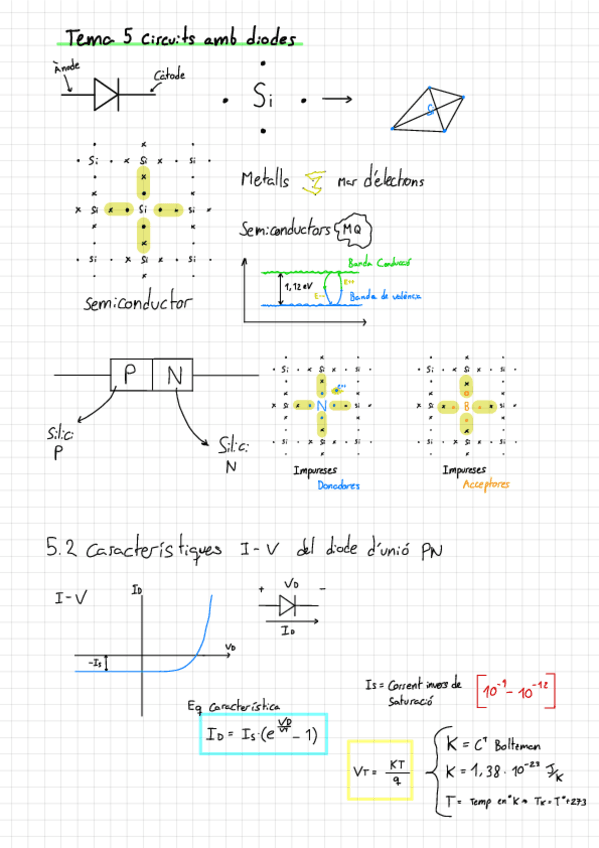 Tema 5 Circuits amb diodes
Ànode
Càtode
Si
Si
Si Si Si
Si Si Si
Si Si Si
Semiconductor
Metalls Mar d'electrons
Semiconductors MQ
Banda Conducció
1,12 eV
Banda de valència
P N
Silici
P
Silici
N
Si Si Si
Si N Si
Si Si Si
Impureses
Donadores
Si Si Si
Si B Si
Si Si Si
Impureses
Acceptores
5.2 Característiques I-V del diode d'unió PN
I-V
ID
VD
-Is
+ VD -
ID
Is = Corrent invers de
Saturació
[10⁻⁹ - 10⁻¹²]
Eq Característica
ID = Is·(e^(VD/VT) - 1)
VT = KT/q
K = Cᵗ Boltzman
K = 1,38 · 10⁻²³ J/K
T = Temp en °K → TK = T° + 273